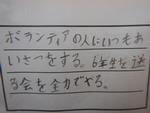 ボランティアの人にいつもあ
いさつをする。6年生を送
る会を全力でやる。